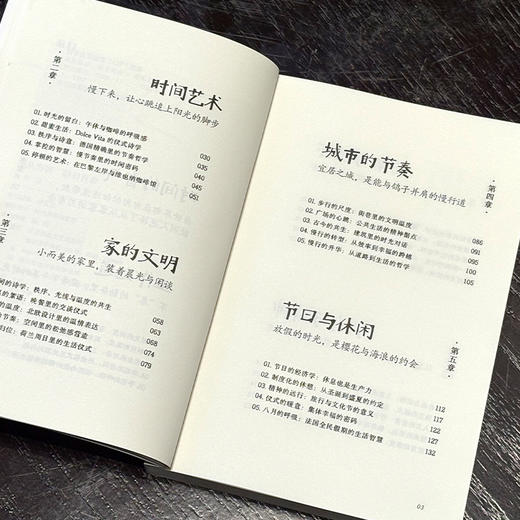 ·第二章·
时间艺术
慢下来，让心跳追上阳光的脚步
01. 时光的留白：午休与咖啡的呼吸感
02. 甜蜜生活：Dolce Vita 的仪式诗学 030
03. 秩序与诗意：德国精确里的节奏哲学 035
04. 掌控的智慧：慢节奏里的时间密码 040
05. 停顿的艺术：在巴黎左岸与维也纳咖啡馆 045
051
·第三章·
家的文明
小而美的家里，装着晨光与闲谈
间的诗学：秩序、光线与温度的共生 058
的絮语：晚餐里的交谈仪式 063
的温度：北欧设计里的温情表达 068
节奏：空间里的松弛感营造 074
归位：荷兰周日里的生活仪式 079
·第四章·
城市的节奏
宜居之城，是能与鸽子并肩的慢行道
01. 步行的尺度：街巷里的文明温度 086
02. 广场的心跳：公共生活的精神据点 091
03. 古今的共生：建筑里的时光对话 095
04. 慢行的转型：从效率到幸福的跨越 100
05. 慢行的升华：从道路到生活的哲学 105
·第五章·
节日与休闲
放假的时光，是樱花与海浪的约会
01. 节日的经济学：休息也是生产力 112
02. 制度化的休憩：从圣诞到盛夏的约定 116
03. 精神的远行：旅行与文化节的意义 122
04. 仪式的暖意：集体幸福的密码 127
05. 八月的呼吸：法国全民假期的生活智慧 132
03